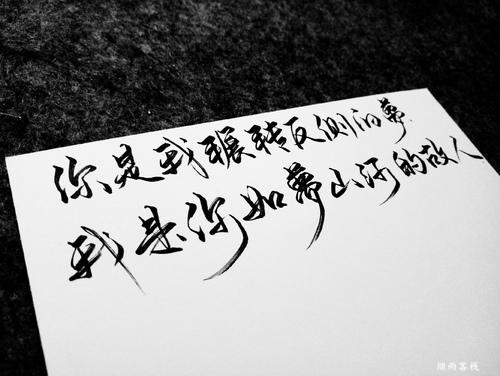 你是我辗转反侧的夢
我是你如夢山河的故人
烟雨客栈